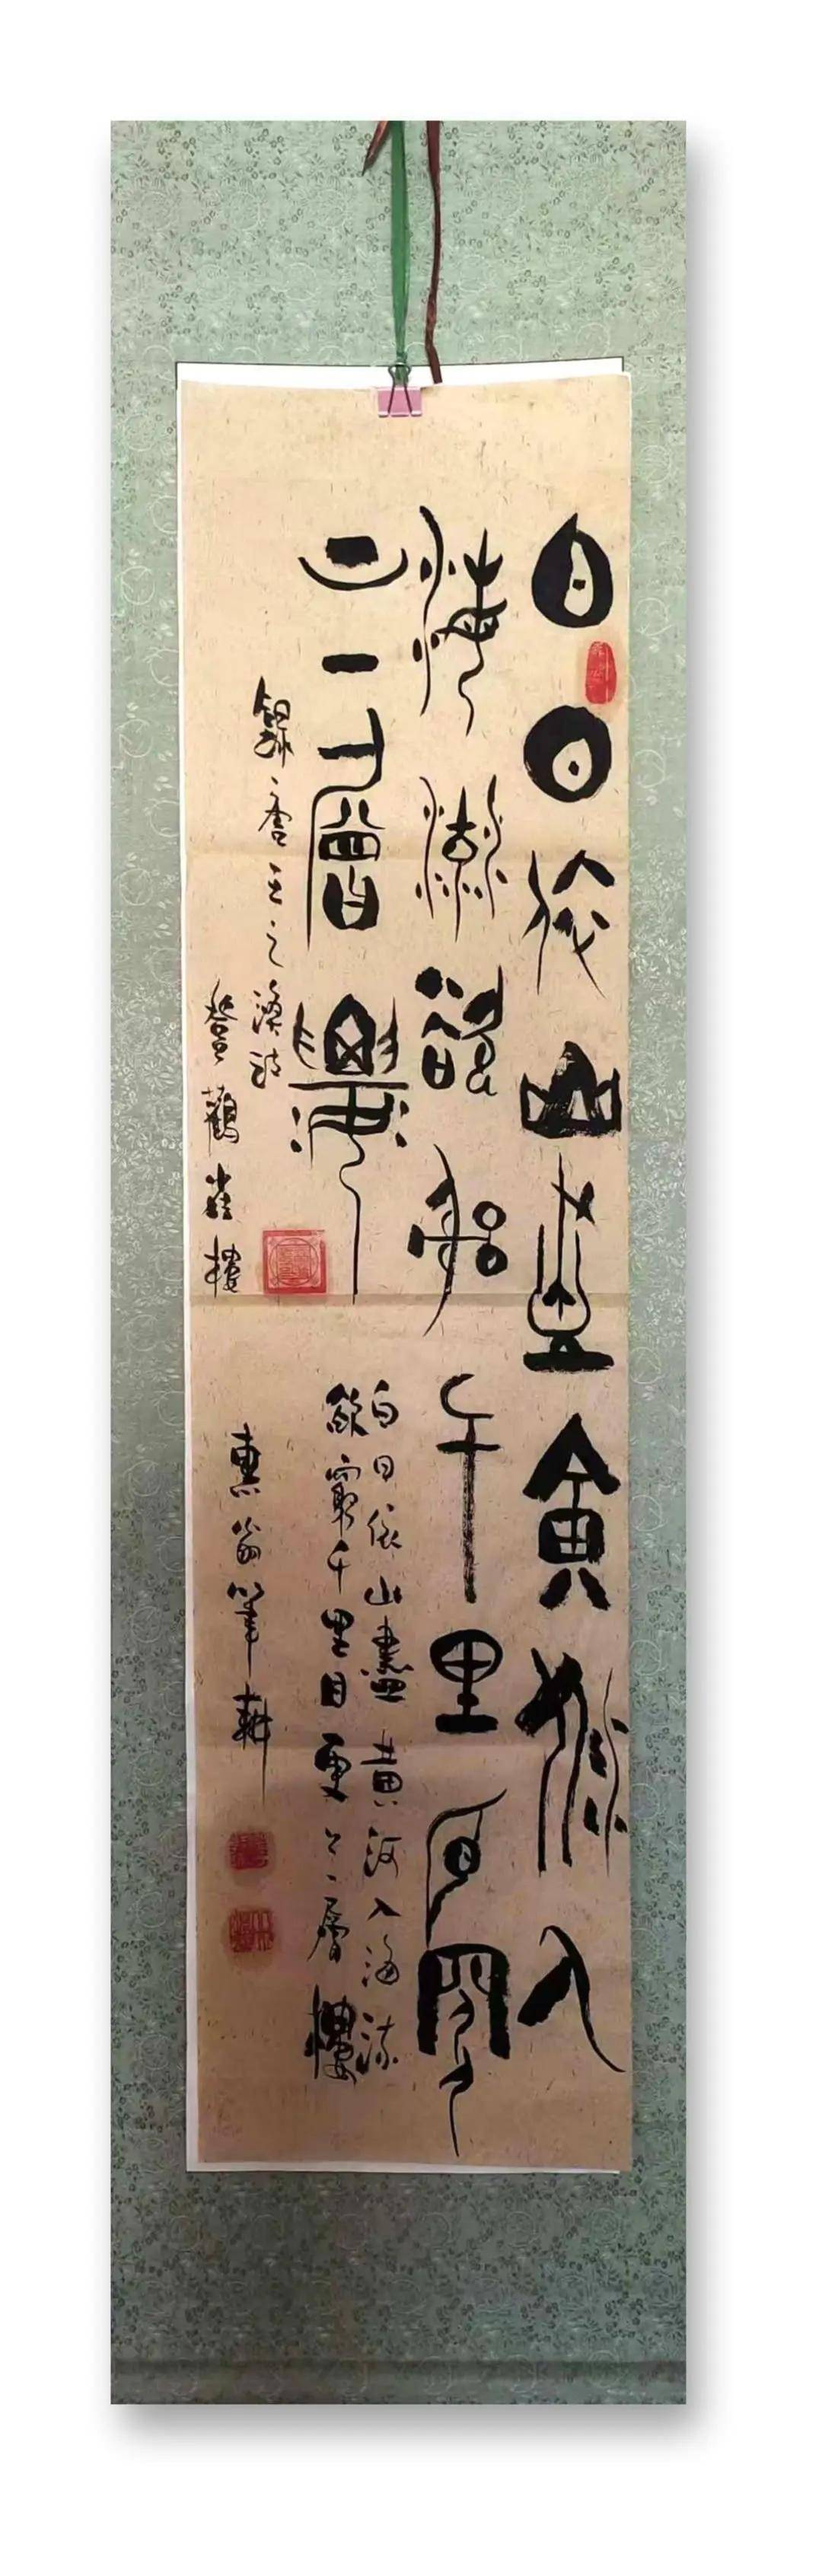 白日依山盡黃河入
海流欲窮千里目更
上一層樓
錄唐王之渙詩
登鸛雀樓
白日依山盡黃河入海流
欲窮千里目更上一層樓
惠翁筆耕